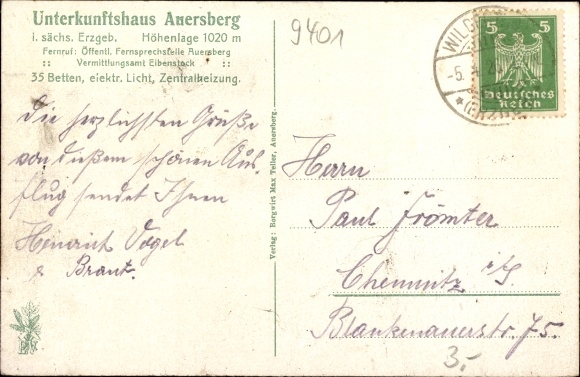 Unterkunftshaus Auersberg
i. sächs. Erzgeb. Höhenlage 1020 m
Fernruf: Öffentl. Fernsprechstelle Auersberg
:: Vermittlungsamt Eibenstock ::
35 Betten, elektr. Licht, Zentralheizung.
9401
5 5
Deutsches
Reich
WILD
-5.
Die herzlichsten Grüße
von diesem schönen Aus-
flug sendet Ihnen
Heinrich Vogel
& Braut.
Verlag: Bergwirt Max Teller, Auersberg.
Herrn
Paul Frömter
Chemnitz i/S.
Blankenauerstr. 75.
3.-